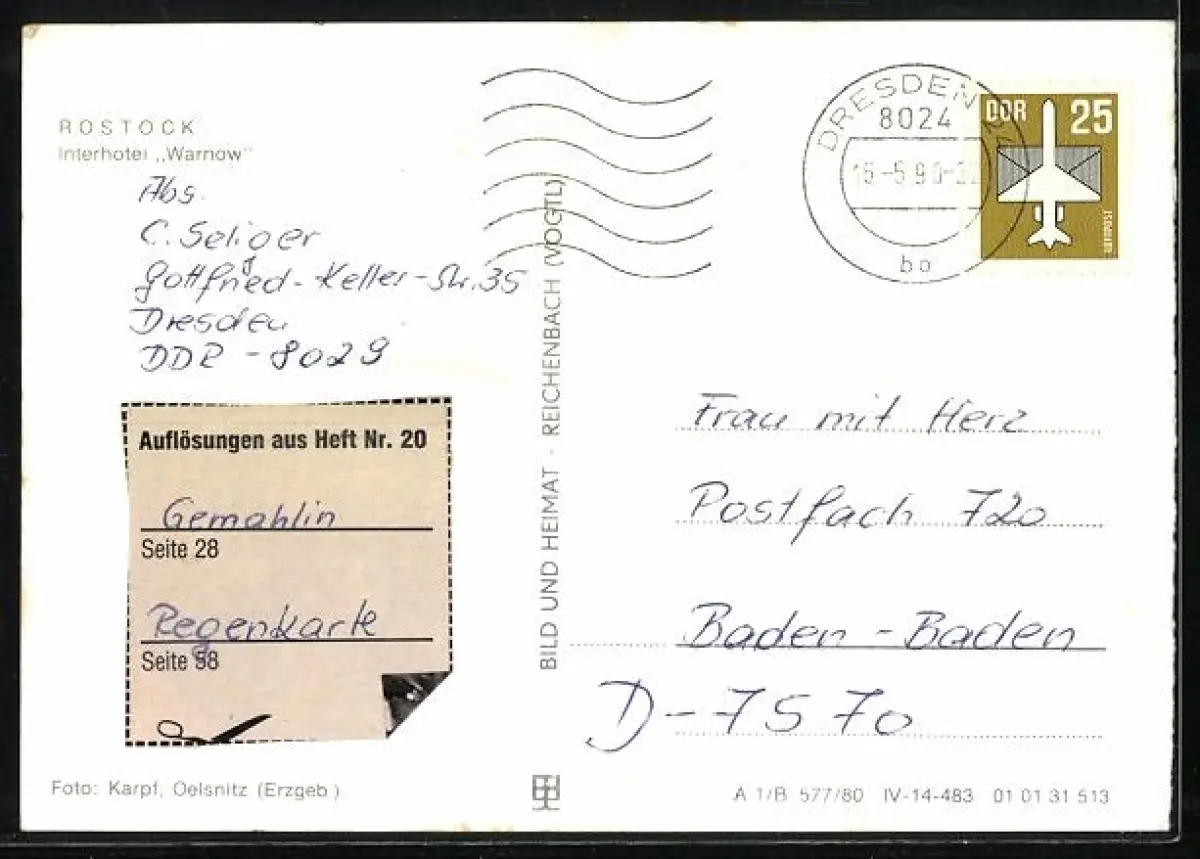 ROSTOCK
Interhotel „Warnow"
Abs.
C. Seliger
Gottfried-Keller-Str. 35
Dresden
DDR - 8029
Auflösungen aus Heft Nr. 20
Gemahlin
Seite 28
Regenkarte
Seite 58
Foto: Karpf, Oelsnitz (Erzgeb.)
BILD UND HEIMAT · REICHENBACH (VOGTL)
DRESDEN 24
8024
-5.90-
bo
DDR 25
LUFTPOST
Frau mit Herz
Postfach 720
Baden-Baden
D-7570
A 1/B 577/80 IV-14-483 01 01 31 513